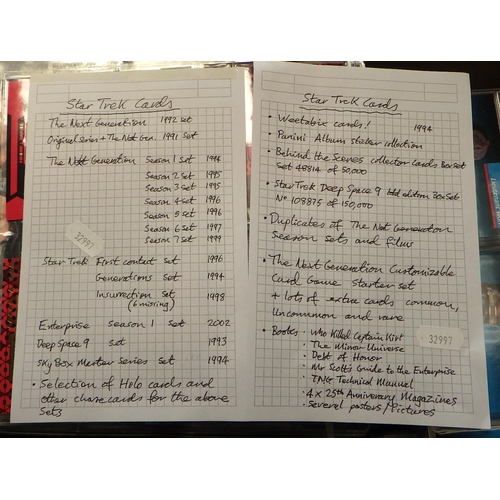 Star Trek Cards
The Next Generation 1992 set
Original Series + The Next Gen. 1991 Set
The Next Generation Season 1 set 1994
Season 2 set 1995
Season 3 set 1995
Season 4 set 1996
Season 5 set 1996
Season 6 set 1997
Season 7 set 1999
32997
Star Trek First contact set 1996
Generations set 1994
Insurrection set 1998
(6 missing)
Enterprise season 1 set 2002
Deep Space 9 set 1993
Sky Box Master Series set 1994
• Selection of Holo cards and
other chase cards for the above
Sets
Star Trek Cards
• Weetabix cards! 1994
• Panini Album sticker collection
• Behind the Scenes collector Cards Box set
Set 48814 of 50,000
• Star Trek Deep Space 9 ltd edition Box Set
No 108875 of 150,000
• Duplicates of The Next Generation
Season sets and films
• The Next Generation Customizable
Card Game Starter set
+ lots of extra cards common,
Uncommon and rare
• Books - Who Killed Captain Kirk
32997
• The Mirror Universe
• Debt of Honor
• Mr Scott's Guide to the Enterprise
• TNG Technical Manuel
• 4 x 25th Anniversary Magazines
• Several posters/Pictures